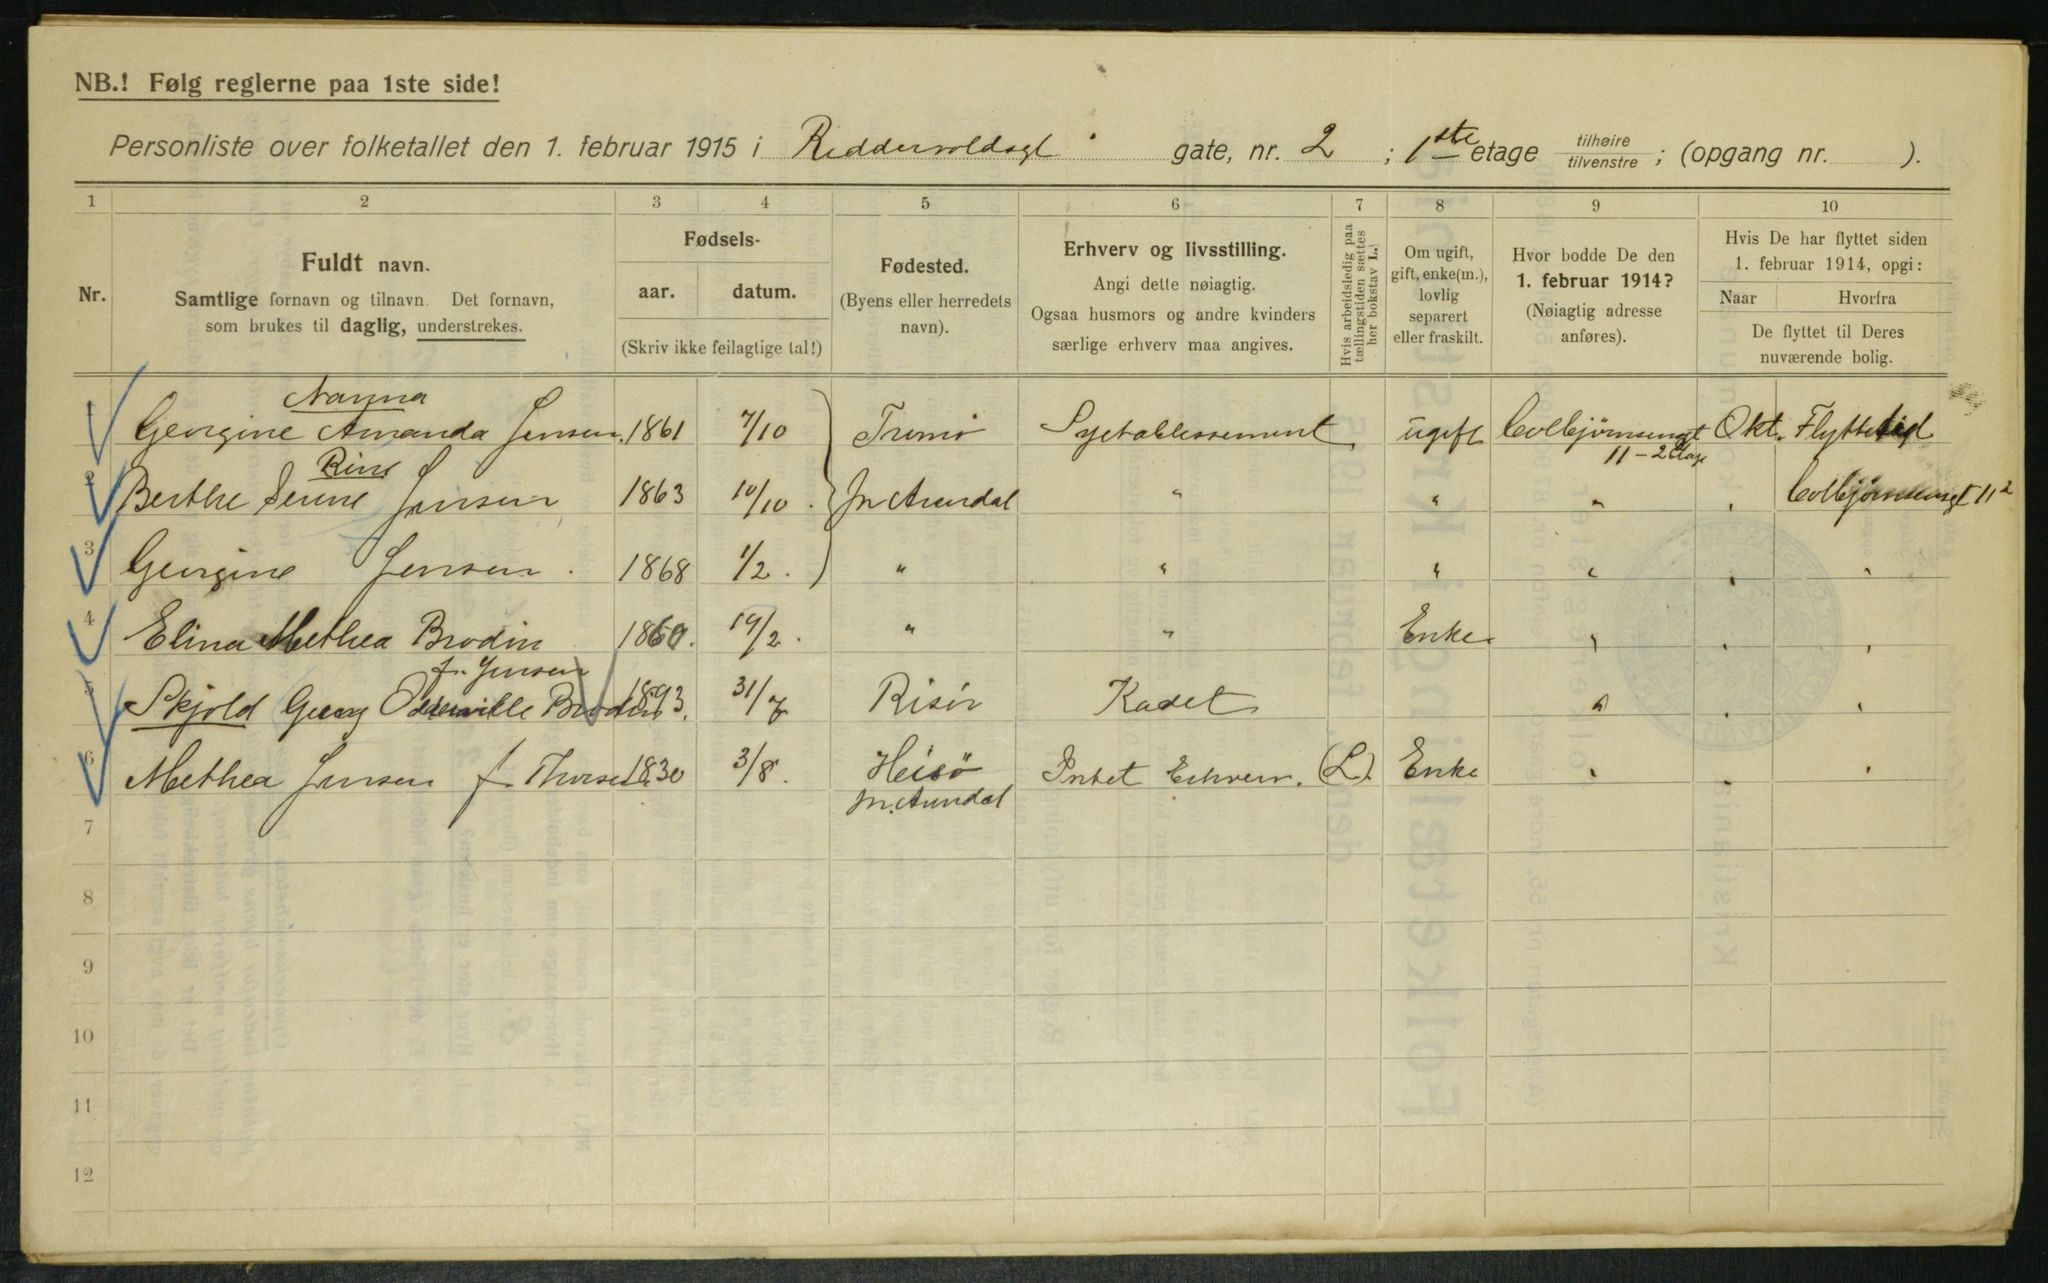 NB.! Følg reglerne paa 1ste side!
Personliste over folketallet den 1. februar 1915 i Riddervoldsgt gate, nr. 2 ; 1ste etage tilhøire tilvenstre ; (opgang nr. ).
1 2 3 4 5 6 7 8 9 10
Nr.
Fuldt navn.
Samtlige fornavn og tilnavn. Det fornavn,
som brukes til daglig, understrekes.
Fødsels-
aar. datum.
(Skriv ikke feilagtige tal!)
Fødested.
(Byens eller herredets
navn).
Erhverv og livsstilling.
Angi dette nøiagtig.
Ogsaa husmors og andre kvinders
særlige erhverv maa angives.
Hvis arbeidsledig paa
tællingstiden sættes
her bokstav L.!
Om ugift,
gift, enke(m.),
lovlig
separert
eller fraskilt.
Hvor bodde De den
1. februar 1914?
(Nøiagtig adresse
anføres).
Hvis De har flyttet siden
1. februar 1914, opgi:
Naar Hvorfra
De flyttet til Deres
nuværende bolig.
Nanna
1 Georgine Amanda Jensen. 1861 7/10 Tromø Syetablissement ugift Colbjørnsensgt Okt. Flyttetid
11 - 2 Etage
Rine
2 Berthe Jensen 1863 10/10 . pr Arendal " " " " Colbjørnsensgt 11 2
3 Georgine Jensen . 1868 1/2 . " " " " " "
4 Elina Methea Brodin 1860. 19/2 . " " Enke " " "
f. Jensen
5 Skjold Georg Brodin 1893. 31/7 Risør Kadet " " "
6 Methea Jensen f Thorsen 1830 3/8 . Heisø Intet Erhverv. (L). Enke " " "
pr. Arendal
7
8
9
10
11
12